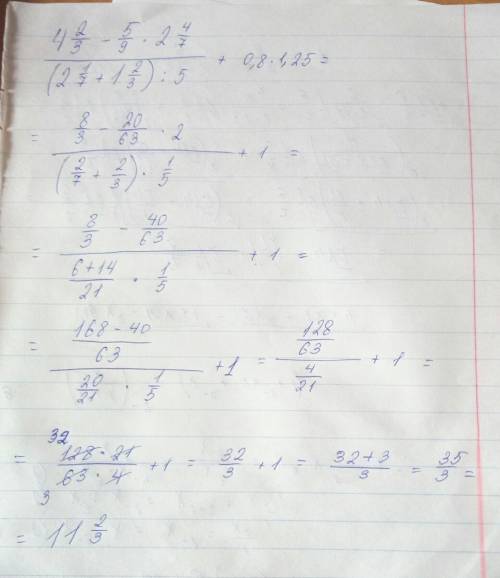 (4 2/3 - 5/9 · 2 4/7) / ((2 1/7 + 1 2/3) : 5) + 0,8 · 1,25 =
= (8/3 - 20/63 · 2) / ((2/7 + 2/3) · 1/5) + 1 =
= (8/3 - 40/63) / ((6+14)/21 · 1/5) + 1 =
= ((168 - 40)/63) / (20/21 · 1/5) + 1 = (128/63) / (4/21) + 1 =
= (128 · 21)/(63 · 4) + 1 = 32/3 + 1 = (32+3)/3 = 35/3 =
32
3
= 11 2/3